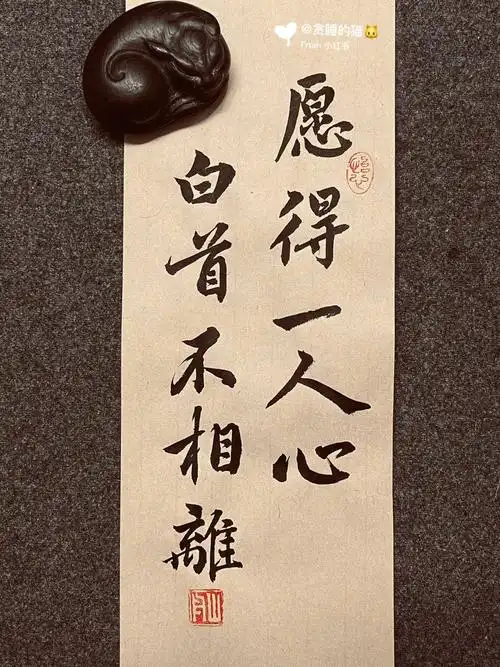 愿得一人心
白首不相離
@贪睡的猫🐱
From 小红书